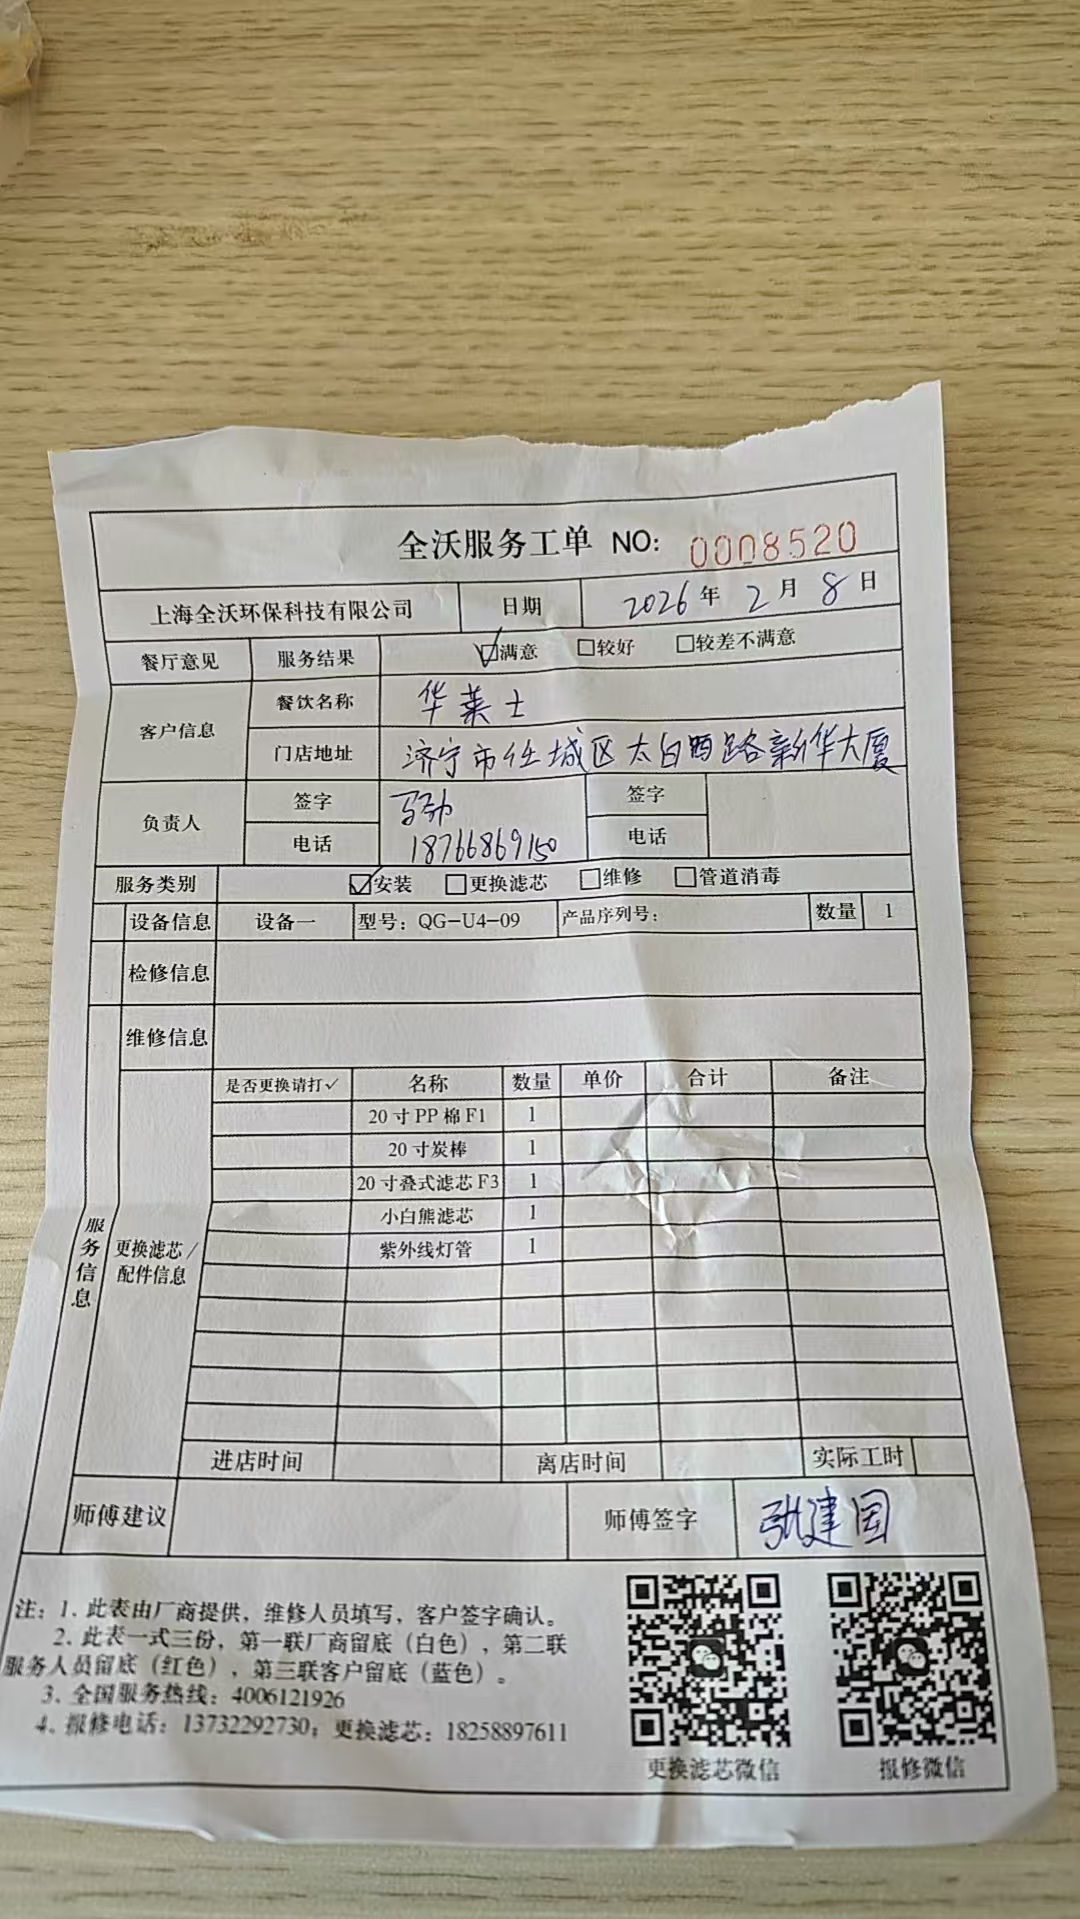 全沃服务工单 NO: 0008520
上海全沃环保科技有限公司 日期 2026年 2月 8日
餐厅意见 服务结果 ☑满意 □较好 □较差不满意
客户信息 餐饮名称 华莱士
门店地址 济宁市任城区太白西路新华大厦
负责人 签字 签字
电话 18766869150 电话
服务类别 ☑安装 □更换滤芯 □维修 □管道消毒
设备信息 设备一 型号：QG-U4-09 产品序列号： 数量 1
检修信息
维修信息
服务信息
更换滤芯/
配件信息
是否更换请打✓ 名称 数量 单价 合计 备注
20寸PP棉F1 1
20寸炭棒 1
20寸叠式滤芯F3 1
小白熊滤芯 1
紫外线灯管 1
进店时间 离店时间 实际工时
师傅建议 师傅签字 张建国
注：1. 此表由厂商提供，维修人员填写，客户签字确认。
2. 此表一式三份，第一联厂商留底（白色），第二联
服务人员留底（红色），第三联客户留底（蓝色）。
3. 全国服务热线：4006121926
4. 报修电话：13732292730；更换滤芯：18258897611
更换滤芯微信 报修微信